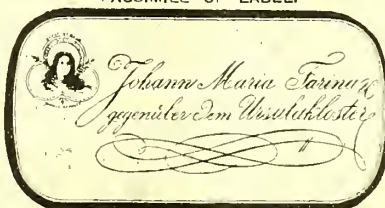 FACSIMILE OF LABEL.
Johann Maria Farina
gegenüber dem Ursulakloster